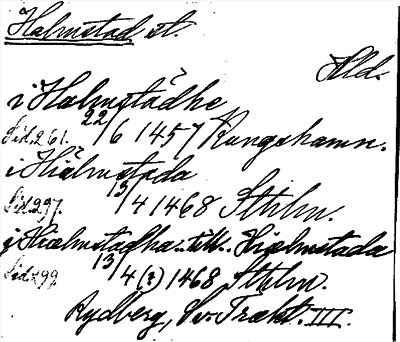 Halmstad st.
Hld.
i Halmstadhe
Sid. 261. 22/6 1457 Kungshamn.
i Hialmstada
Sid. 297. 13/4 1468 Sthlm.
j Hialmstadha .. till Hielmstada
Sid. 299. 13/4 (?) 1468 Sthlm.
Rydberg, Sv. Trakt. III.